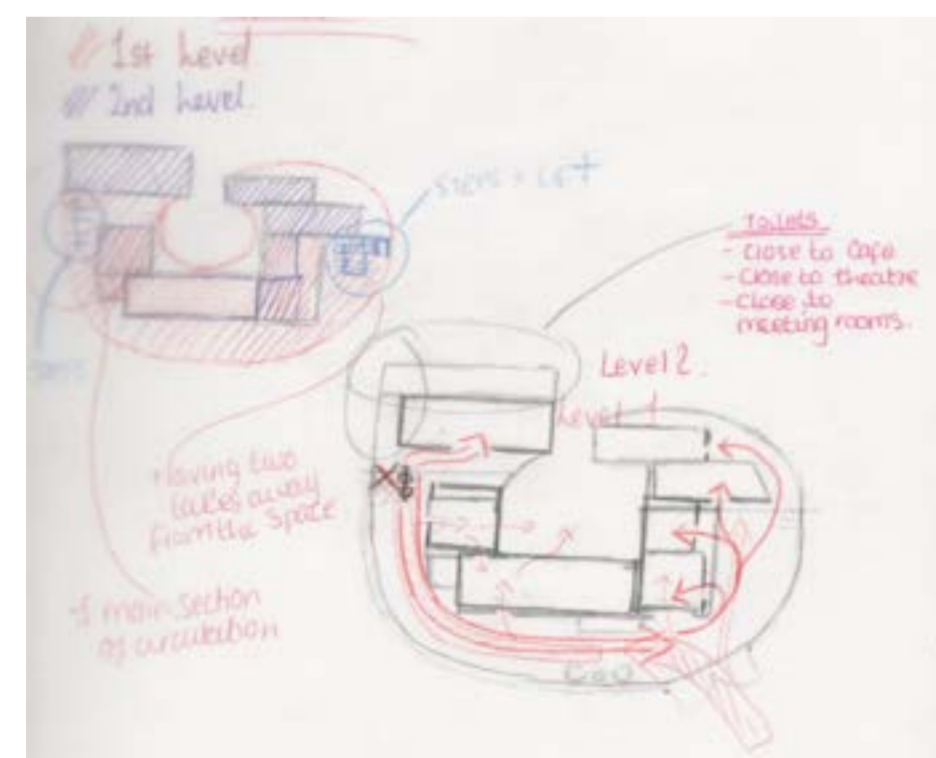 1st Level
2nd Level.
STEPS + LIFT
Toilets
- Close to Cafe
- Close to theatre
- Close to
meeting rooms.
Level 2.
Level 1
Having two
takes away
from the space
-1 main section
of circulation